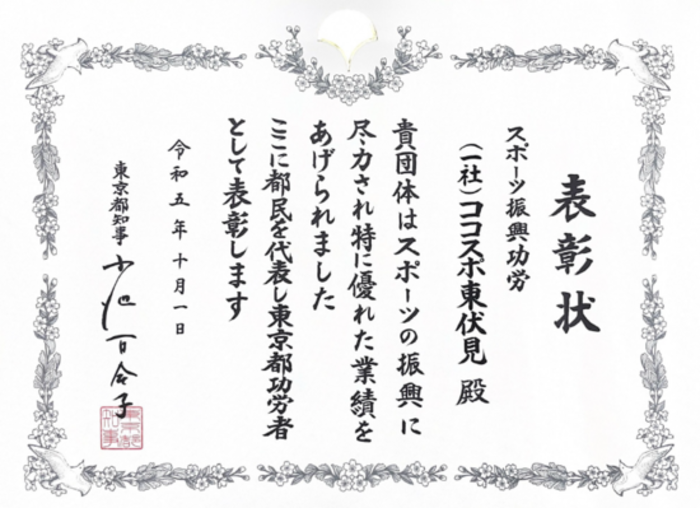 表彰状
スポーツ振興功労
(一社)ココスポ東伏見 殿
貴団体はスポーツの振興に
尽力され特に優れた業績を
あげられました
ここに都民を代表し東京都功労者
として表彰します
令和五年十月一日
東京都知事 小池百合子
東京都知事